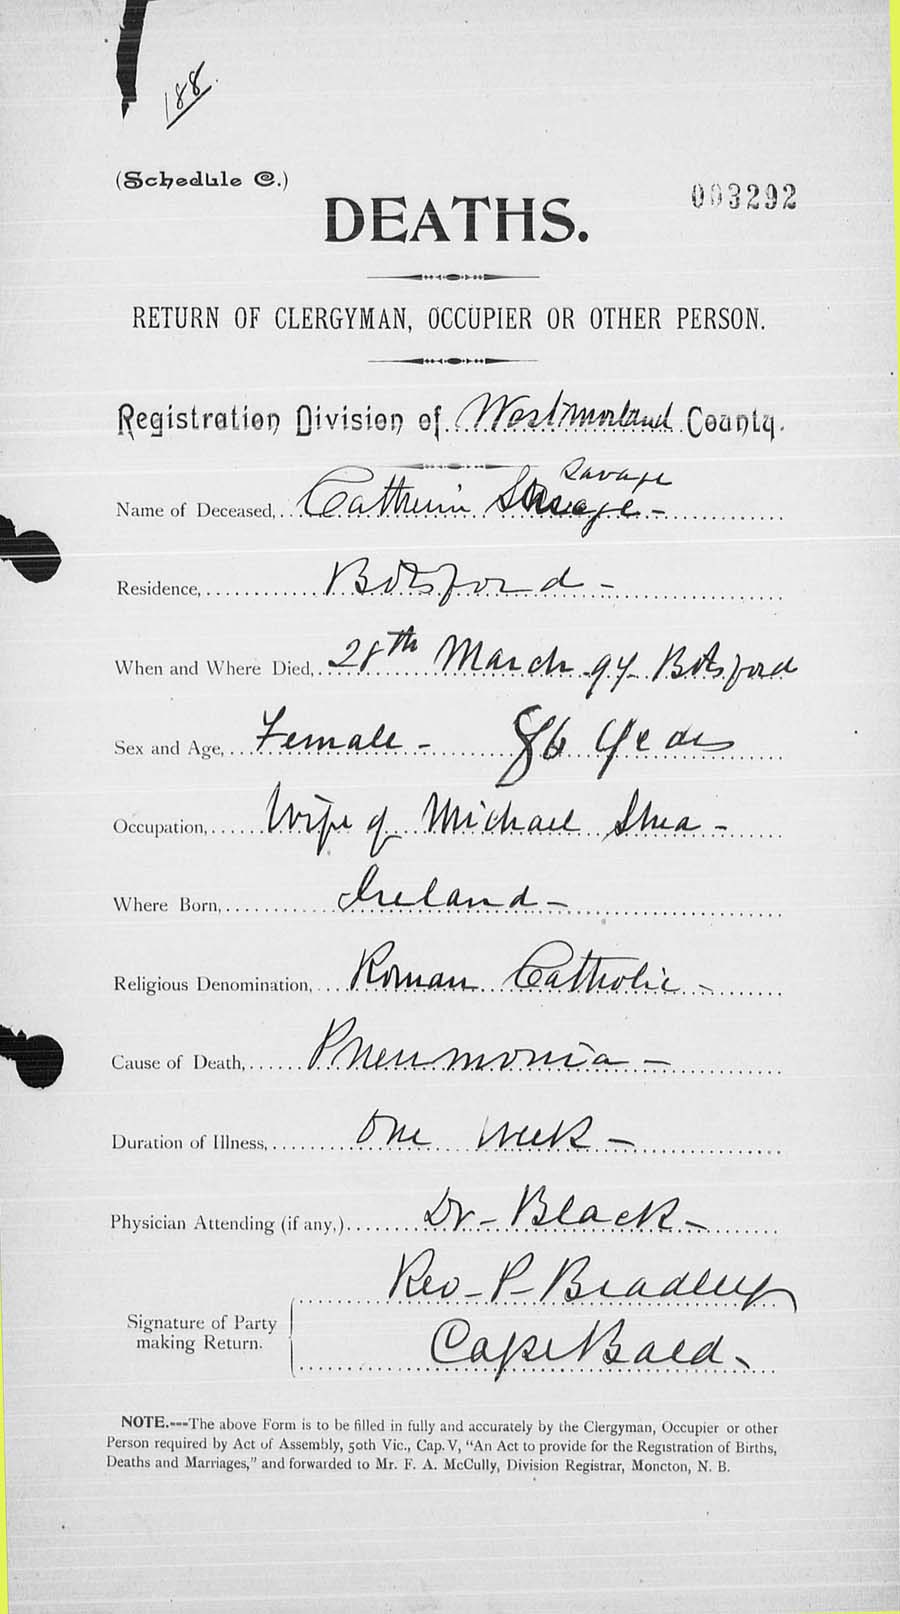 188.
(Schedule C.)
003292
DEATHS.
RETURN OF CLERGYMAN, OCCUPIER OR OTHER PERSON.
Registration Division of Westmorland County.
Savage
Name of Deceased, Cathrin Savage -
Residence, Botsford -
When and Where Died, 28th March 94 Botsford
Sex and Age, Female - 86 Years
Occupation, Wife of Michael Shea -
Where Born, Ireland -
Religious Denomination, Roman Catholic -
Cause of Death, Pneumonia -
Duration of Illness, One week -
Physician Attending (if any,) Dr - Black -
Rev - P - Bradley
Signature of Party
making Return.
Cape Bald -
NOTE.---The above Form is to be filled in fully and accurately by the Clergyman, Occupier or other
Person required by Act of Assembly, 50th Vic., Cap. V, "An Act to provide for the Registration of Births,
Deaths and Marriages," and forwarded to Mr. F. A. McCully, Division Registrar, Moncton, N. B.